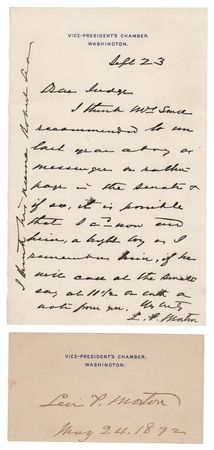 VICE-PRESIDENT'S CHAMBER,
WASHINGTON.
Sept 23
Dear Judge
I think Mrs
recommended to me
last year a boy as
messenger or rather
page in the Senate &
if so, it is possible
that I can now aid
him, a bright boy as I
remember him, if he
will call at the Senate
say at 11 1/2 or with a
note from you.
L. P. Morton
I think his name
VICE-PRESIDENT'S CHAMBER,
WASHINGTON.
Levi P. Morton
May 24. 1892